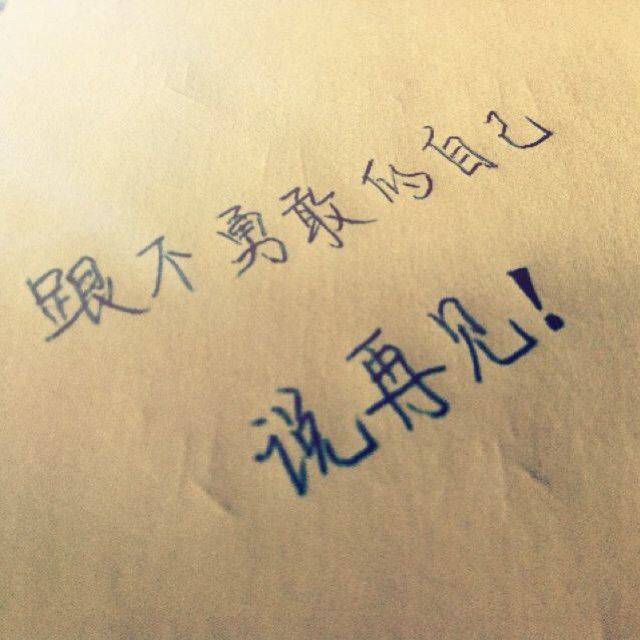 跟不勇敢的自己
说再见!